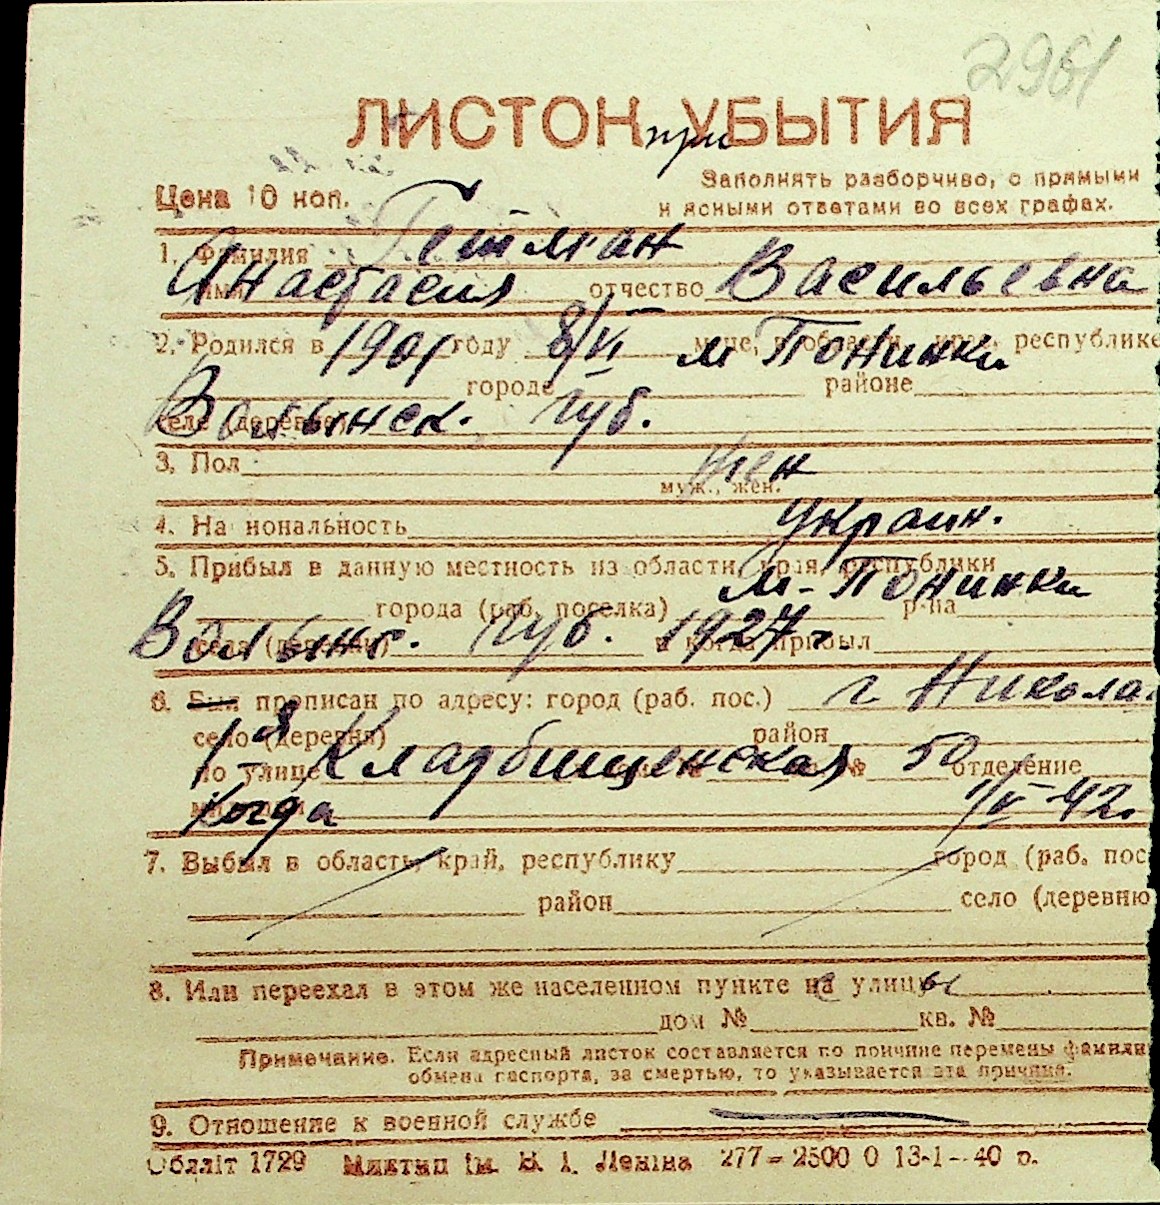 2961
ЛИСТОК при УБЫТИЯ
Цена 10 коп.
Заполнять разборчиво, с прямыми
и ясными ответами во всех графах.
1. Фамилия Гетман
имя Анастасия отчество Васильевна
2. Родился в 1901 году 8/VI м Понинки республике
городе районе
селе (деревне) Волынск. губ.
3. Пол жен
муж., жен.
4. На иональность украин.
5. Прибыл в данную местность из области, края, республики
м-Понинки
города (раб. поселка) р-на
села (деревни) Волынс. губ. 1927 г. и когда прибыл
6. Был прописан по адресу: город (раб. пос.) г Никола
село (деревня) район
по улице 1-я Кладбищенская № 50 отделение
Когда 1/V-42.
7. Выбыл в область, край, республику город (раб. пос
район село (деревню
8. Или переехал в этом же населенном пункте с улицы
дом № кв. №
Примечание. Если адресный листок составляется по причине перемены фамили
обмена паспорта, за смертью, то указывается эта причина.
9. Отношение к военной службе
Обллiт 1729 Миктип iм. В. I. Ленiна 277–2500 0 13-1–40 р.